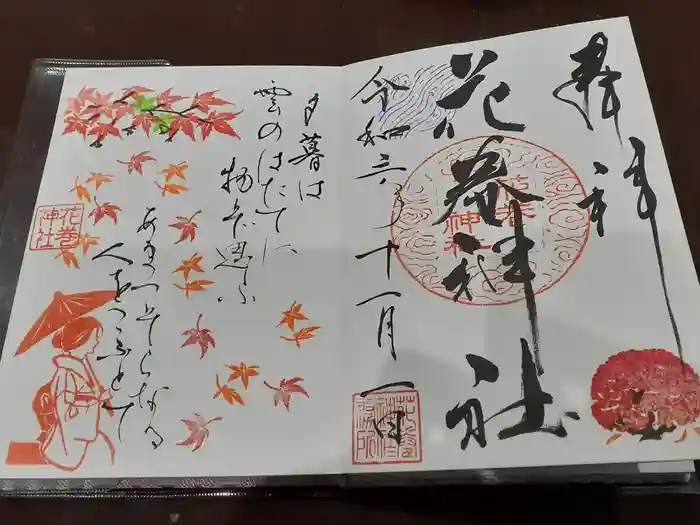 奉拝
花巻神社
令和六年十一月一日
花巻
神社
夕暮は
雲のはたてに
物そ思ふ
あまつそらなる
人をこふとて
花巻
神社